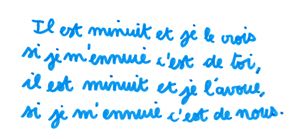 Il est minuit et je le vois
si je m'ennuie c'est de toi,
il est minuit et je l'avoue,
si je m'ennuie c'est de nous.